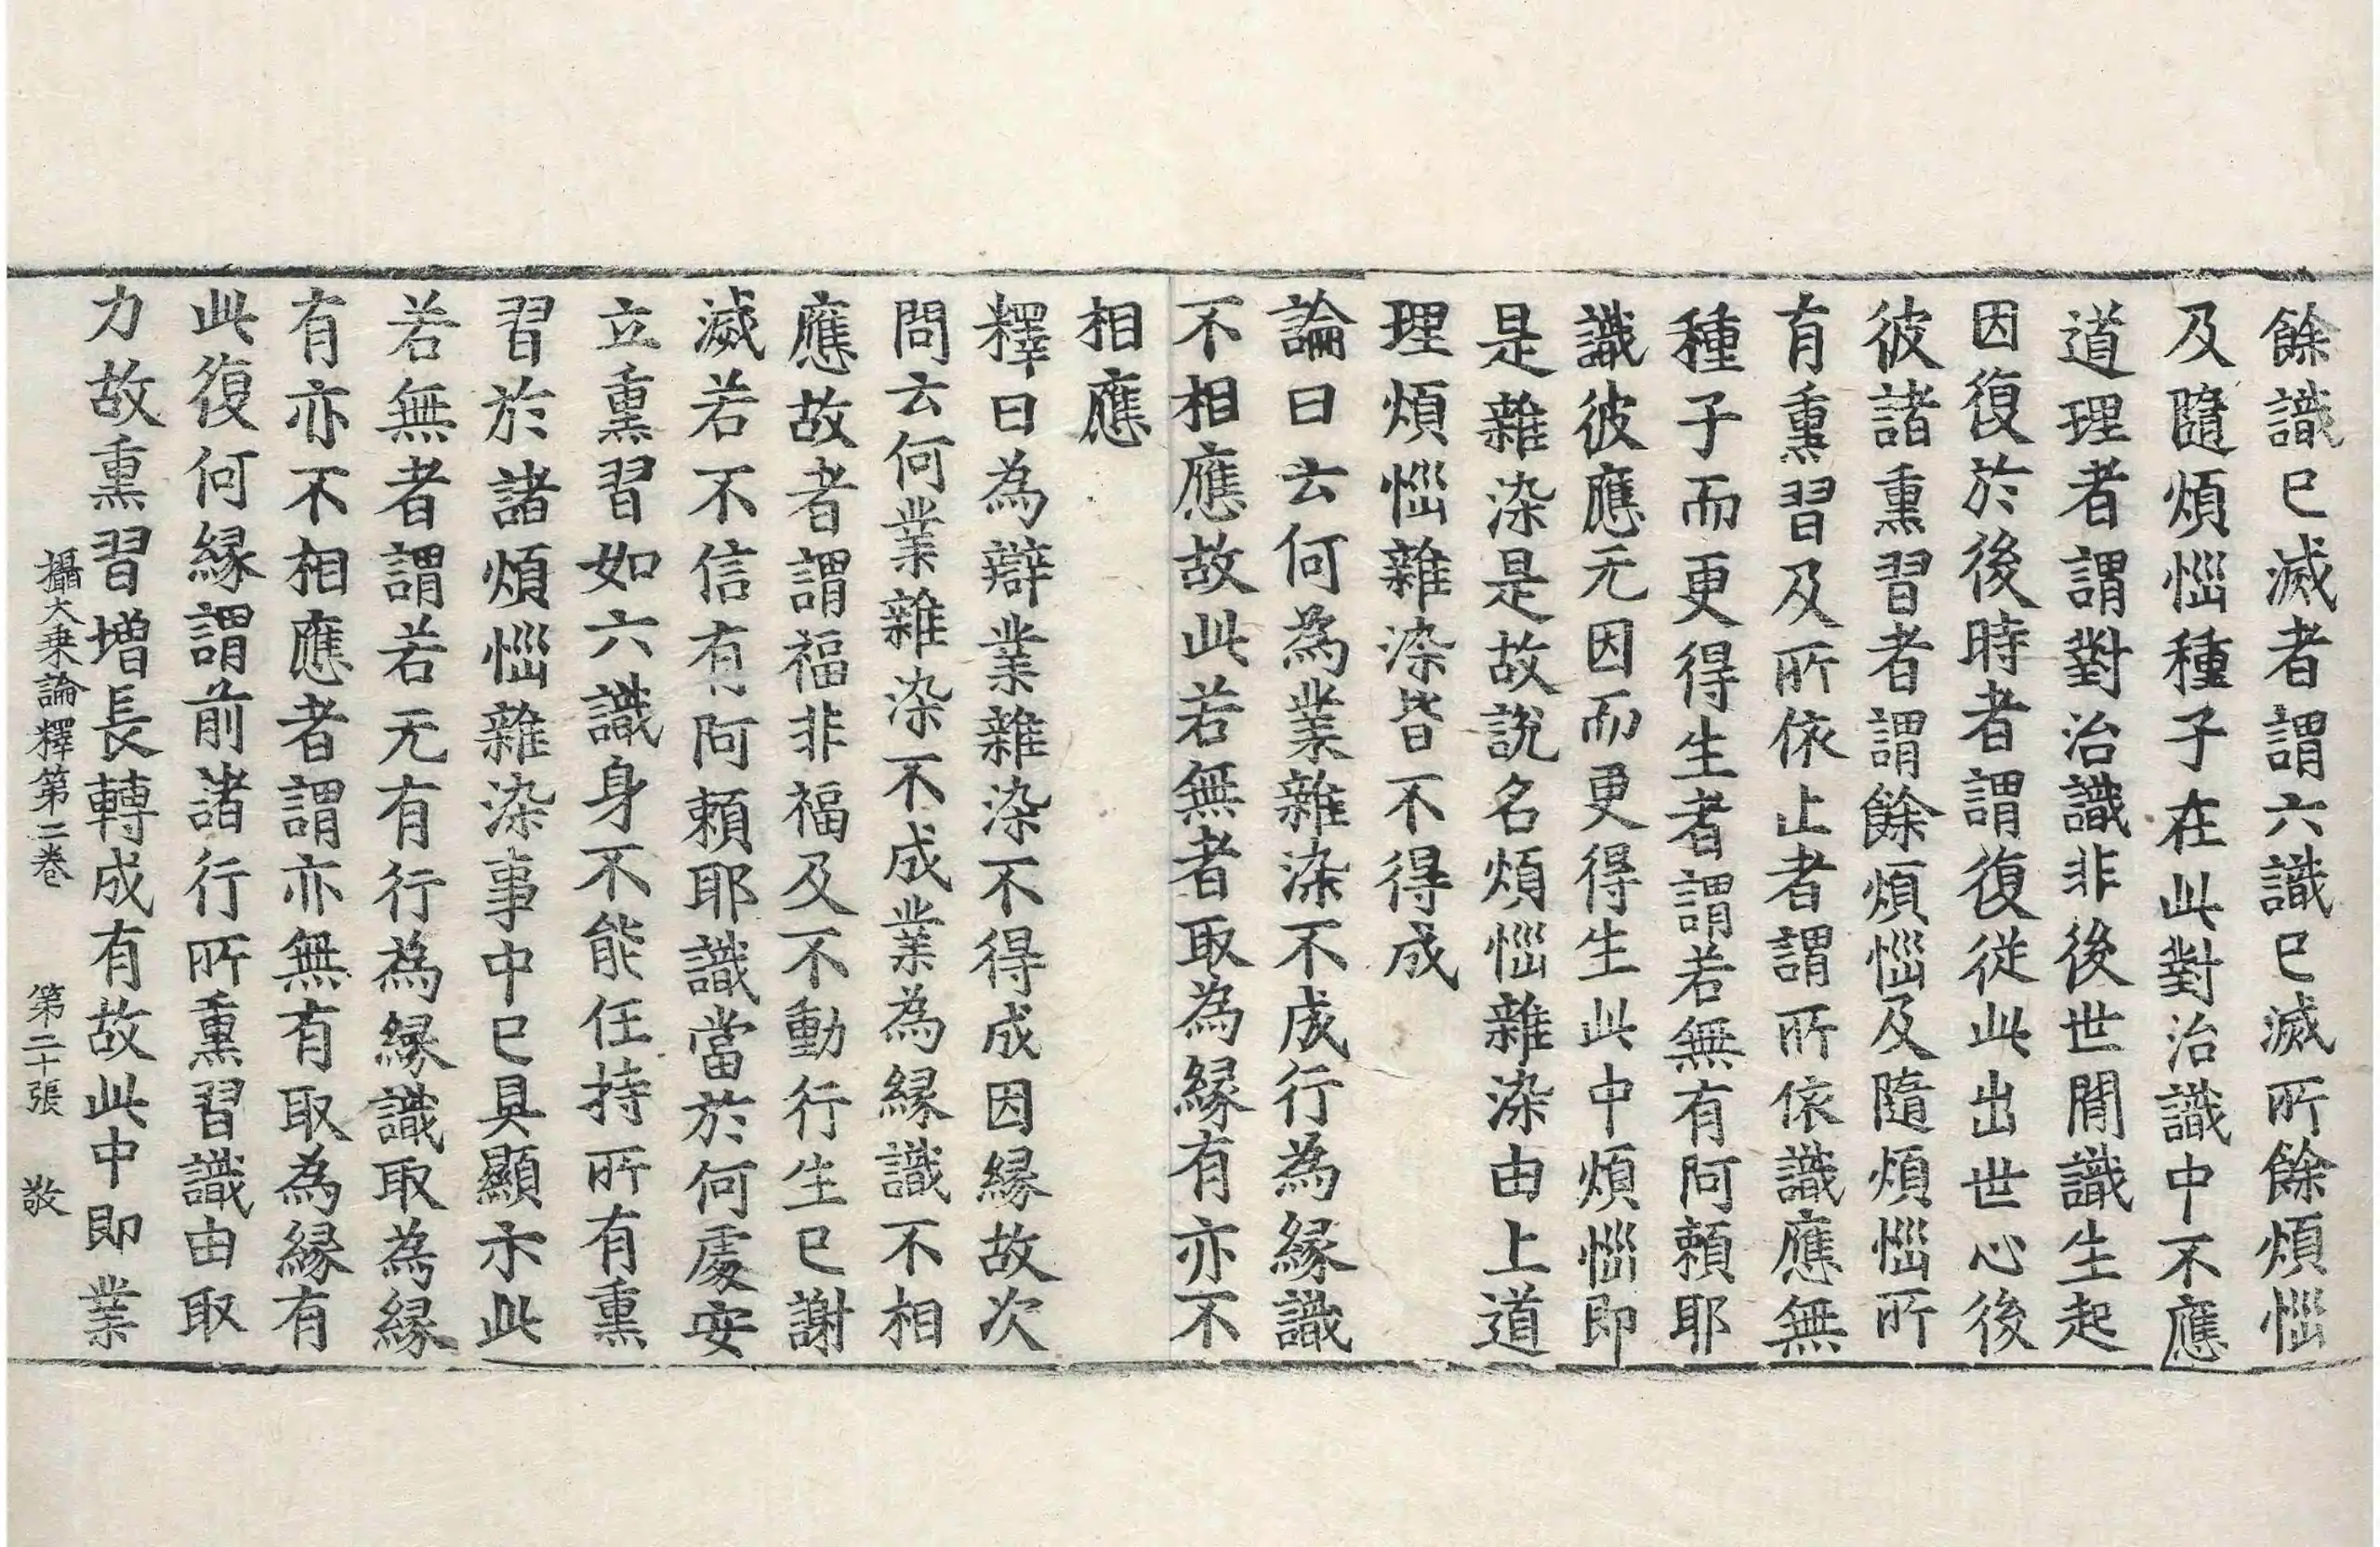 餘識已滅者謂六識已滅所餘煩惱
及隨煩惱種子在此對治識中不應
道理者謂對治識非後世間識生起
因復於後時者謂復從此出世心後
彼諸熏習者謂餘煩惱及隨煩惱所
有熏習及所依止者謂所依識應無
種子而更得生者謂若無有阿賴耶
識彼應无因而更得生此中煩惱即
是雜染是故說名煩惱雜染由上道
理煩惱雜染皆不得成
論曰云何為業雜染不成行為緣識
不相應故此若無者取為緣有亦不
相應
釋曰為辯業雜染不得成因緣故次
問云何業雜染不成業為緣識不相
應故者謂福非福及不動行生已謝
滅若不信有阿賴耶識當於何處安
立熏習如六識身不能任持所有熏
習於諸煩惱雜染事中已具顯示此
若無者謂若无有行為緣識取為緣
有亦不相應者謂亦無有取為緣有
此復何緣謂前諸行所熏習識由取
力故熏習增長轉成有故此中即業
攝大乘論釋第二卷 第二十張 敬